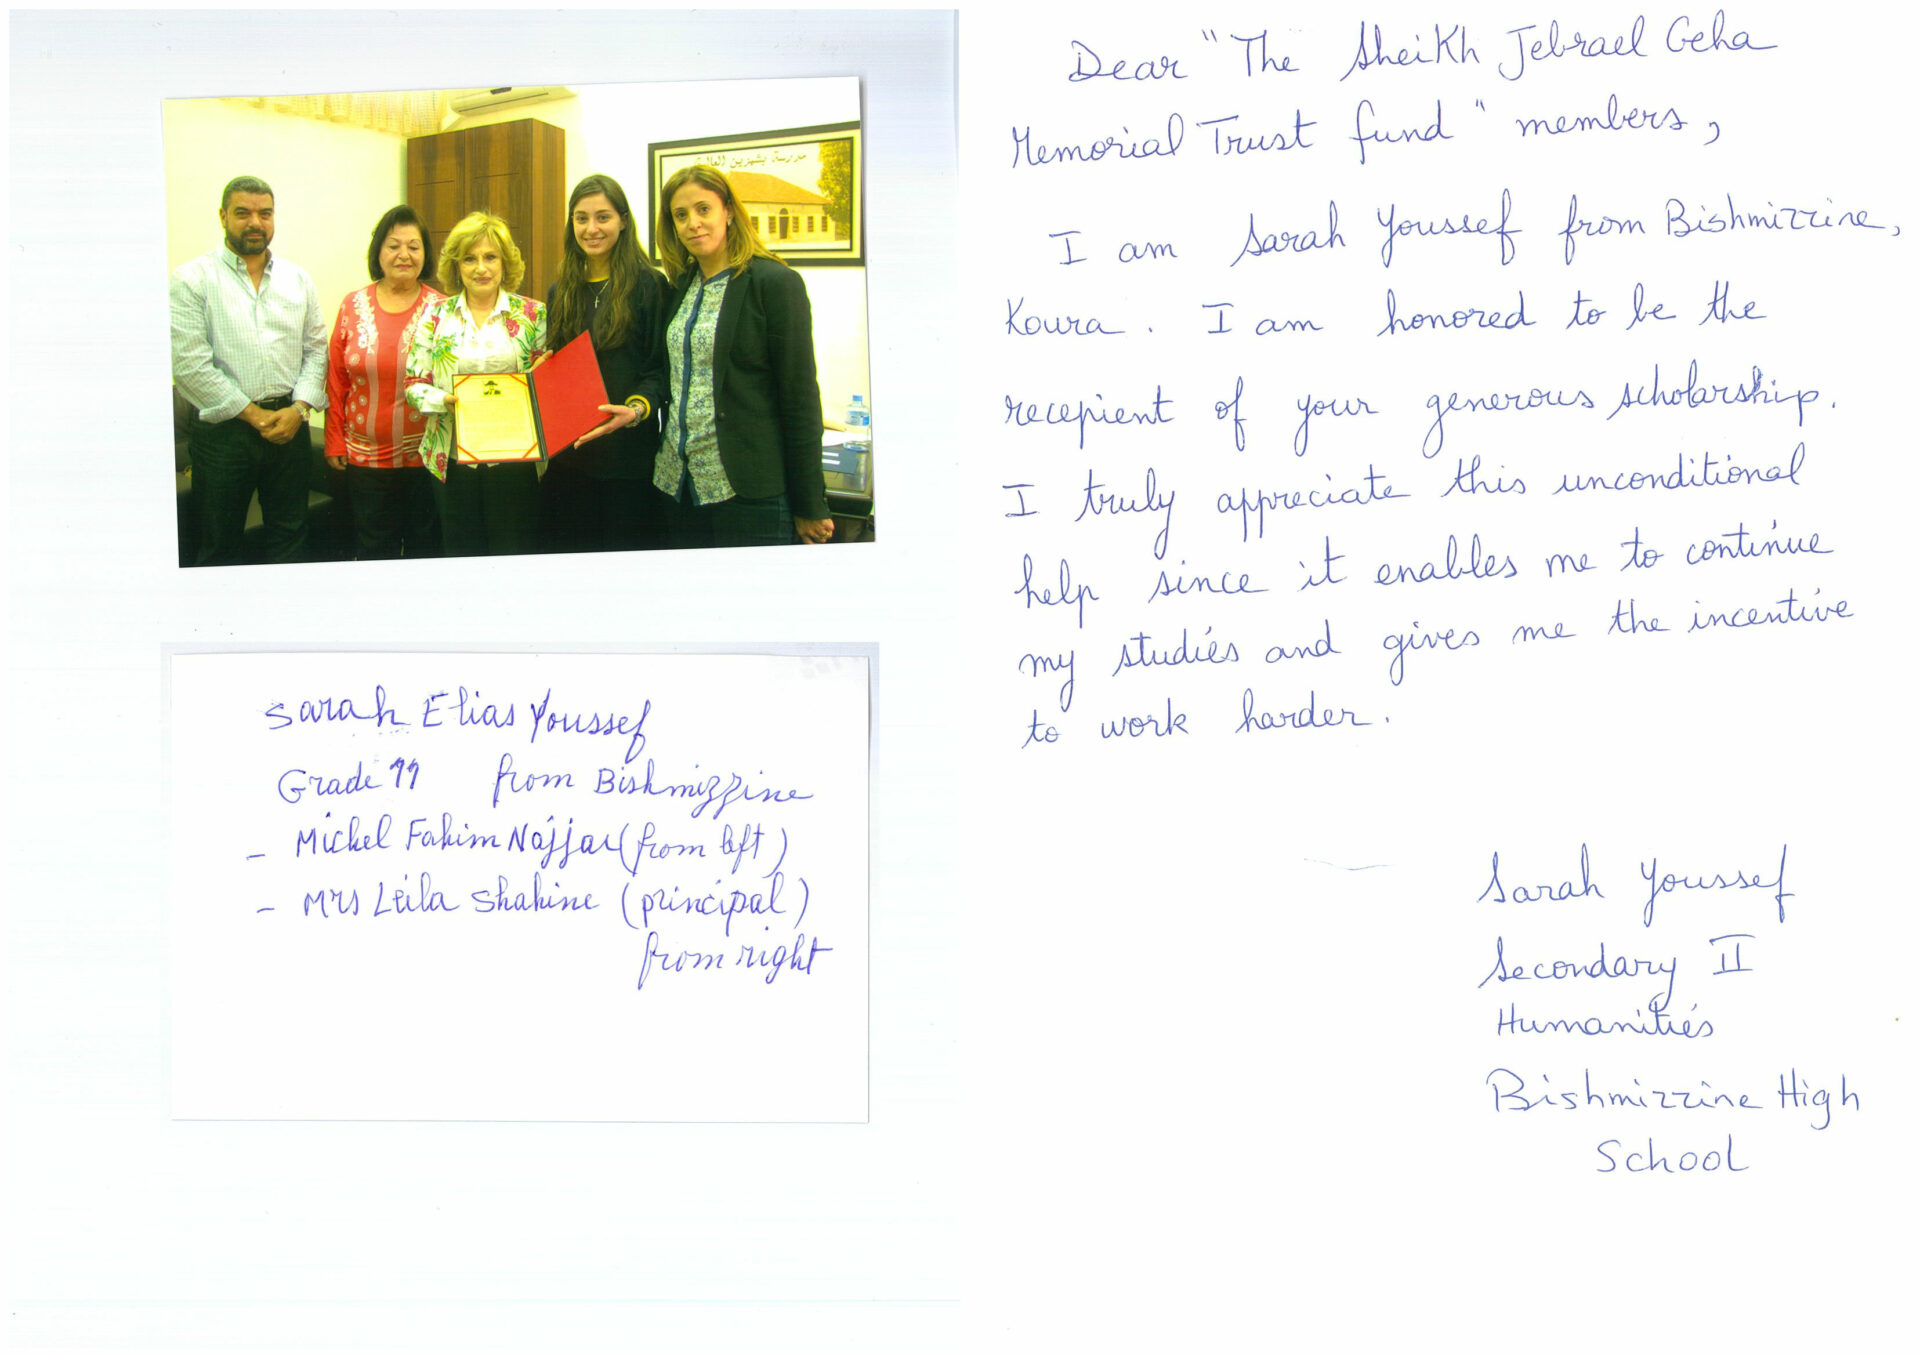 مدرسة بشمزين العالية
Sarah Elias Youssef
Grade 11 from Bishmizzine
- Michel Fahim Najjar (from left)
- Mrs Leila Shahine (principal)
from right
Dear "The Sheikh Jebrael Geha
Memorial Trust fund" members,
I am Sarah Youssef from Bishmizzine,
Koura. I am honored to be the
recepient of your generous scholarship.
I truly appreciate this unconditional
help since it enables me to continue
my studies and gives me the incentive
to work harder.
Sarah Youssef
Secondary II
Humanities
Bishmizzine High
School